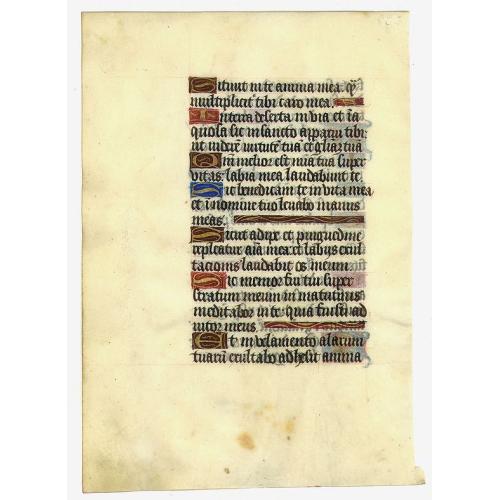 Sitivit in te anima mea. q̄
multiplicit' tibi caro mea.
In terra deserta invia et īa
quosa sic in sancto apparui tibi:
ut viderē virtutē tuā et gl'iaz tuā
Qm̄ melior est mīa tua super
vitas: labia mea laudabunt te.
Sic benedicam te in vita mea
et ī nomine tuo levabo manus
meas.
Sicut adipe et pinguedine
repleatur aīa mea: et labiis exul
tacionis laudabit os meum.
Sic memor fui tui super
stratum meum in matutinis
meditabor in te: quia fuisti ad
iutor meus.
Et in velamento alarum
tuarū exultabo adhesit anima